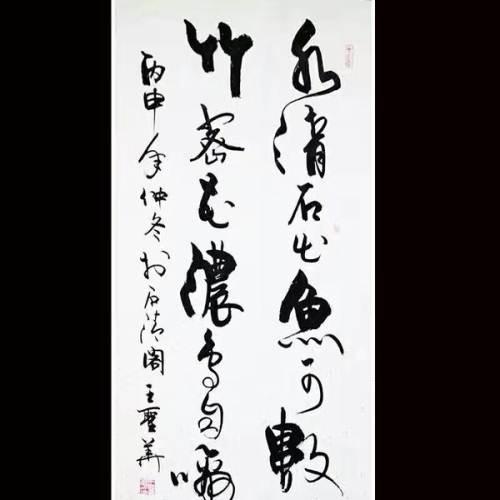 水清石出魚可數
竹密花濃鳥自啼
丙申年仲冬於石清閣王聖華